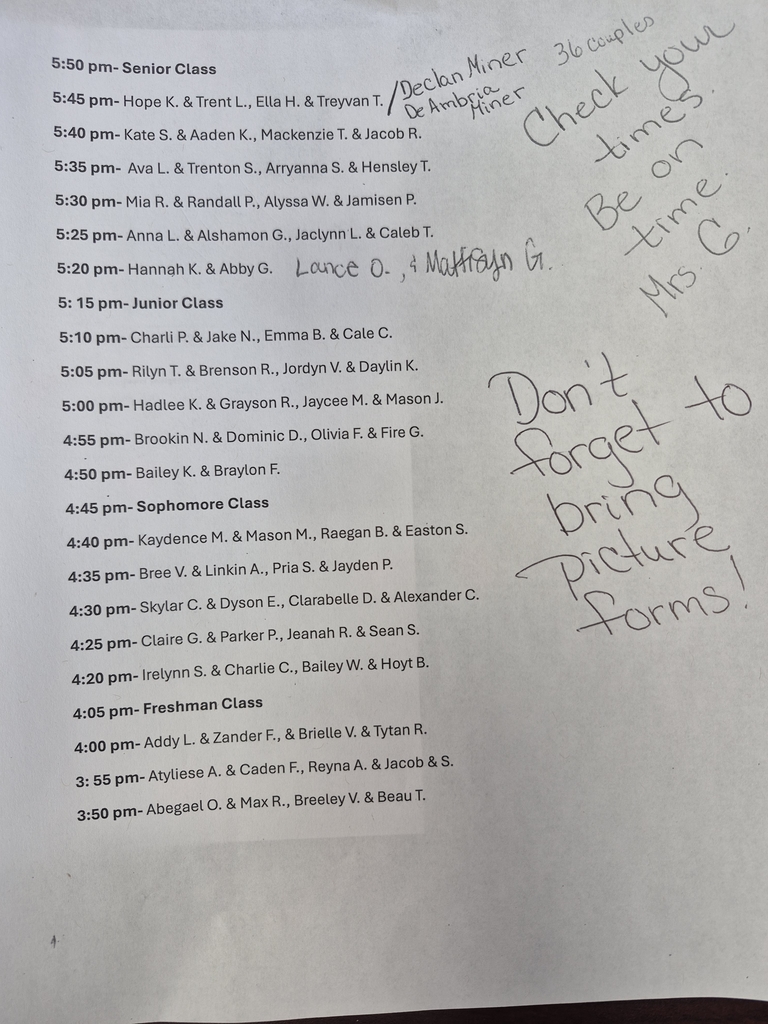 5:50 pm- Senior Class
5:45 pm- Hope K. & Trent L., Ella H. & Treyvan T. / Declan Miner
DeAmbria
Miner
36 couples
5:40 pm- Kate S. & Aaden K., Mackenzie T. & Jacob R.
5:35 pm- Ava L. & Trenton S., Arryanna S. & Hensley T.
5:30 pm- Mia R. & Randall P., Alyssa W. & Jamisen P.
5:25 pm- Anna L. & Alshamon G., Jaclynn L. & Caleb T.
5:20 pm- Hannah K. & Abby G. Lance O., & G.
5: 15 pm- Junior Class
5:10 pm- Charli P. & Jake N., Emma B. & Cale C.
5:05 pm- Rilyn T. & Brenson R., Jordyn V. & Daylin K.
5:00 pm- Hadlee K. & Grayson R., Jaycee M. & Mason J.
4:55 pm- Brookin N. & Dominic D., Olivia F. & Fire G.
4:50 pm- Bailey K. & Braylon F.
4:45 pm- Sophomore Class
4:40 pm- Kaydence M. & Mason M., Raegan B. & Easton S.
4:35 pm- Bree V. & Linkin A., Pria S. & Jayden P.
4:30 pm- Skylar C. & Dyson E., Clarabelle D. & Alexander C.
4:25 pm- Claire G. & Parker P., Jeanah R. & Sean S.
4:20 pm- Irelynn S. & Charlie C., Bailey W. & Hoyt B.
4:05 pm- Freshman Class
4:00 pm- Addy L. & Zander F., & Brielle V. & Tytan R.
3: 55 pm- Atyliese A. & Caden F., Reyna A. & Jacob & S.
3:50 pm- Abegael O. & Max R., Breeley V. & Beau T.
Check your
times.
Be on
time.
Mrs. G.
Don't
forget to
bring
picture
forms!